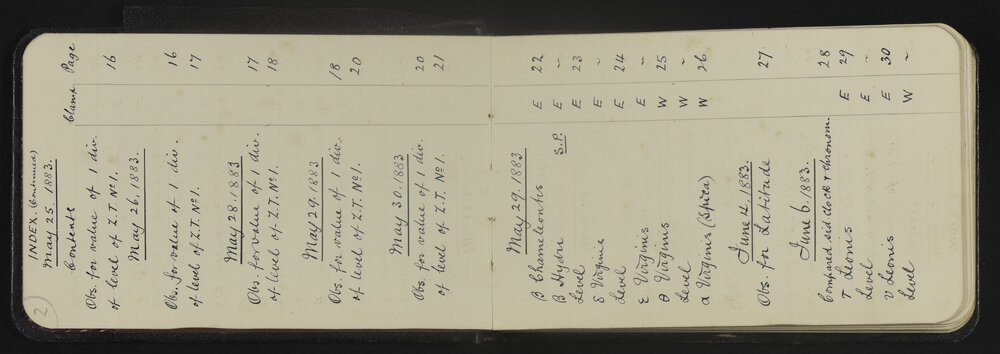 2
INDEX. (Continued)
May 25, 1883.
Contents Clamp Page
Obs. for value of 1 div.
of level of Z.T. No 1. 16
May 26, 1883.
Obs. for value of 1 div. 16
of level of Z.T. No 1. 17
May 28. 1883
Obs. for value of 1 div. 17
of level of Z.T. No 1. 18
May 29. 1883
Obs. for value of 1 div. 18
of level of Z.T. No 1. 20
May 30. 1883
Obs. for value of 1 div. 20
of level of Z.T. No 1. 21
May 29. 1883
β Chameleontis E 22
β Hydri S.P. E "
Level E 23
δ Virginis E "
Level E 24
ε Virginis E "
θ Virginis W 25
Level W "
α Virginis (Spica) W 26
June 4. 1883.
Obs. for Latitude 27
June 6. 1883.
Compared sid clock & chronom. 28
τ Leonis E 29
Level E "
υ Leonis E 30
Level W "